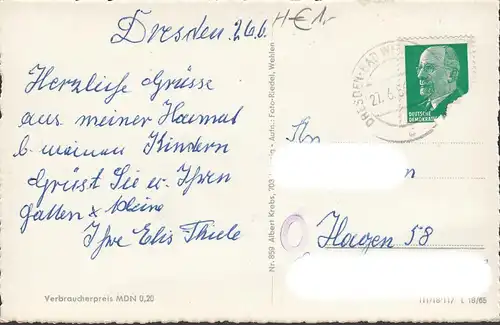 Dresden. 26.6.
H€1,-
Herzliche Grüsse
aus meiner Heimat
b. meinen Kindern
Grüst Sie u. Ihren
Gatten x Kleine
Ihre Elis Thiele
Verbraucherpreis MDN 0,20
Nr. 859 Albert Krebs,
Aufn.: Foto-Riedel, Wehlen
DRESDEN-BAD
27.6.
DEUTSCHE
DEMOKRA
An
Hagen 58
111/18/117 L 18/65